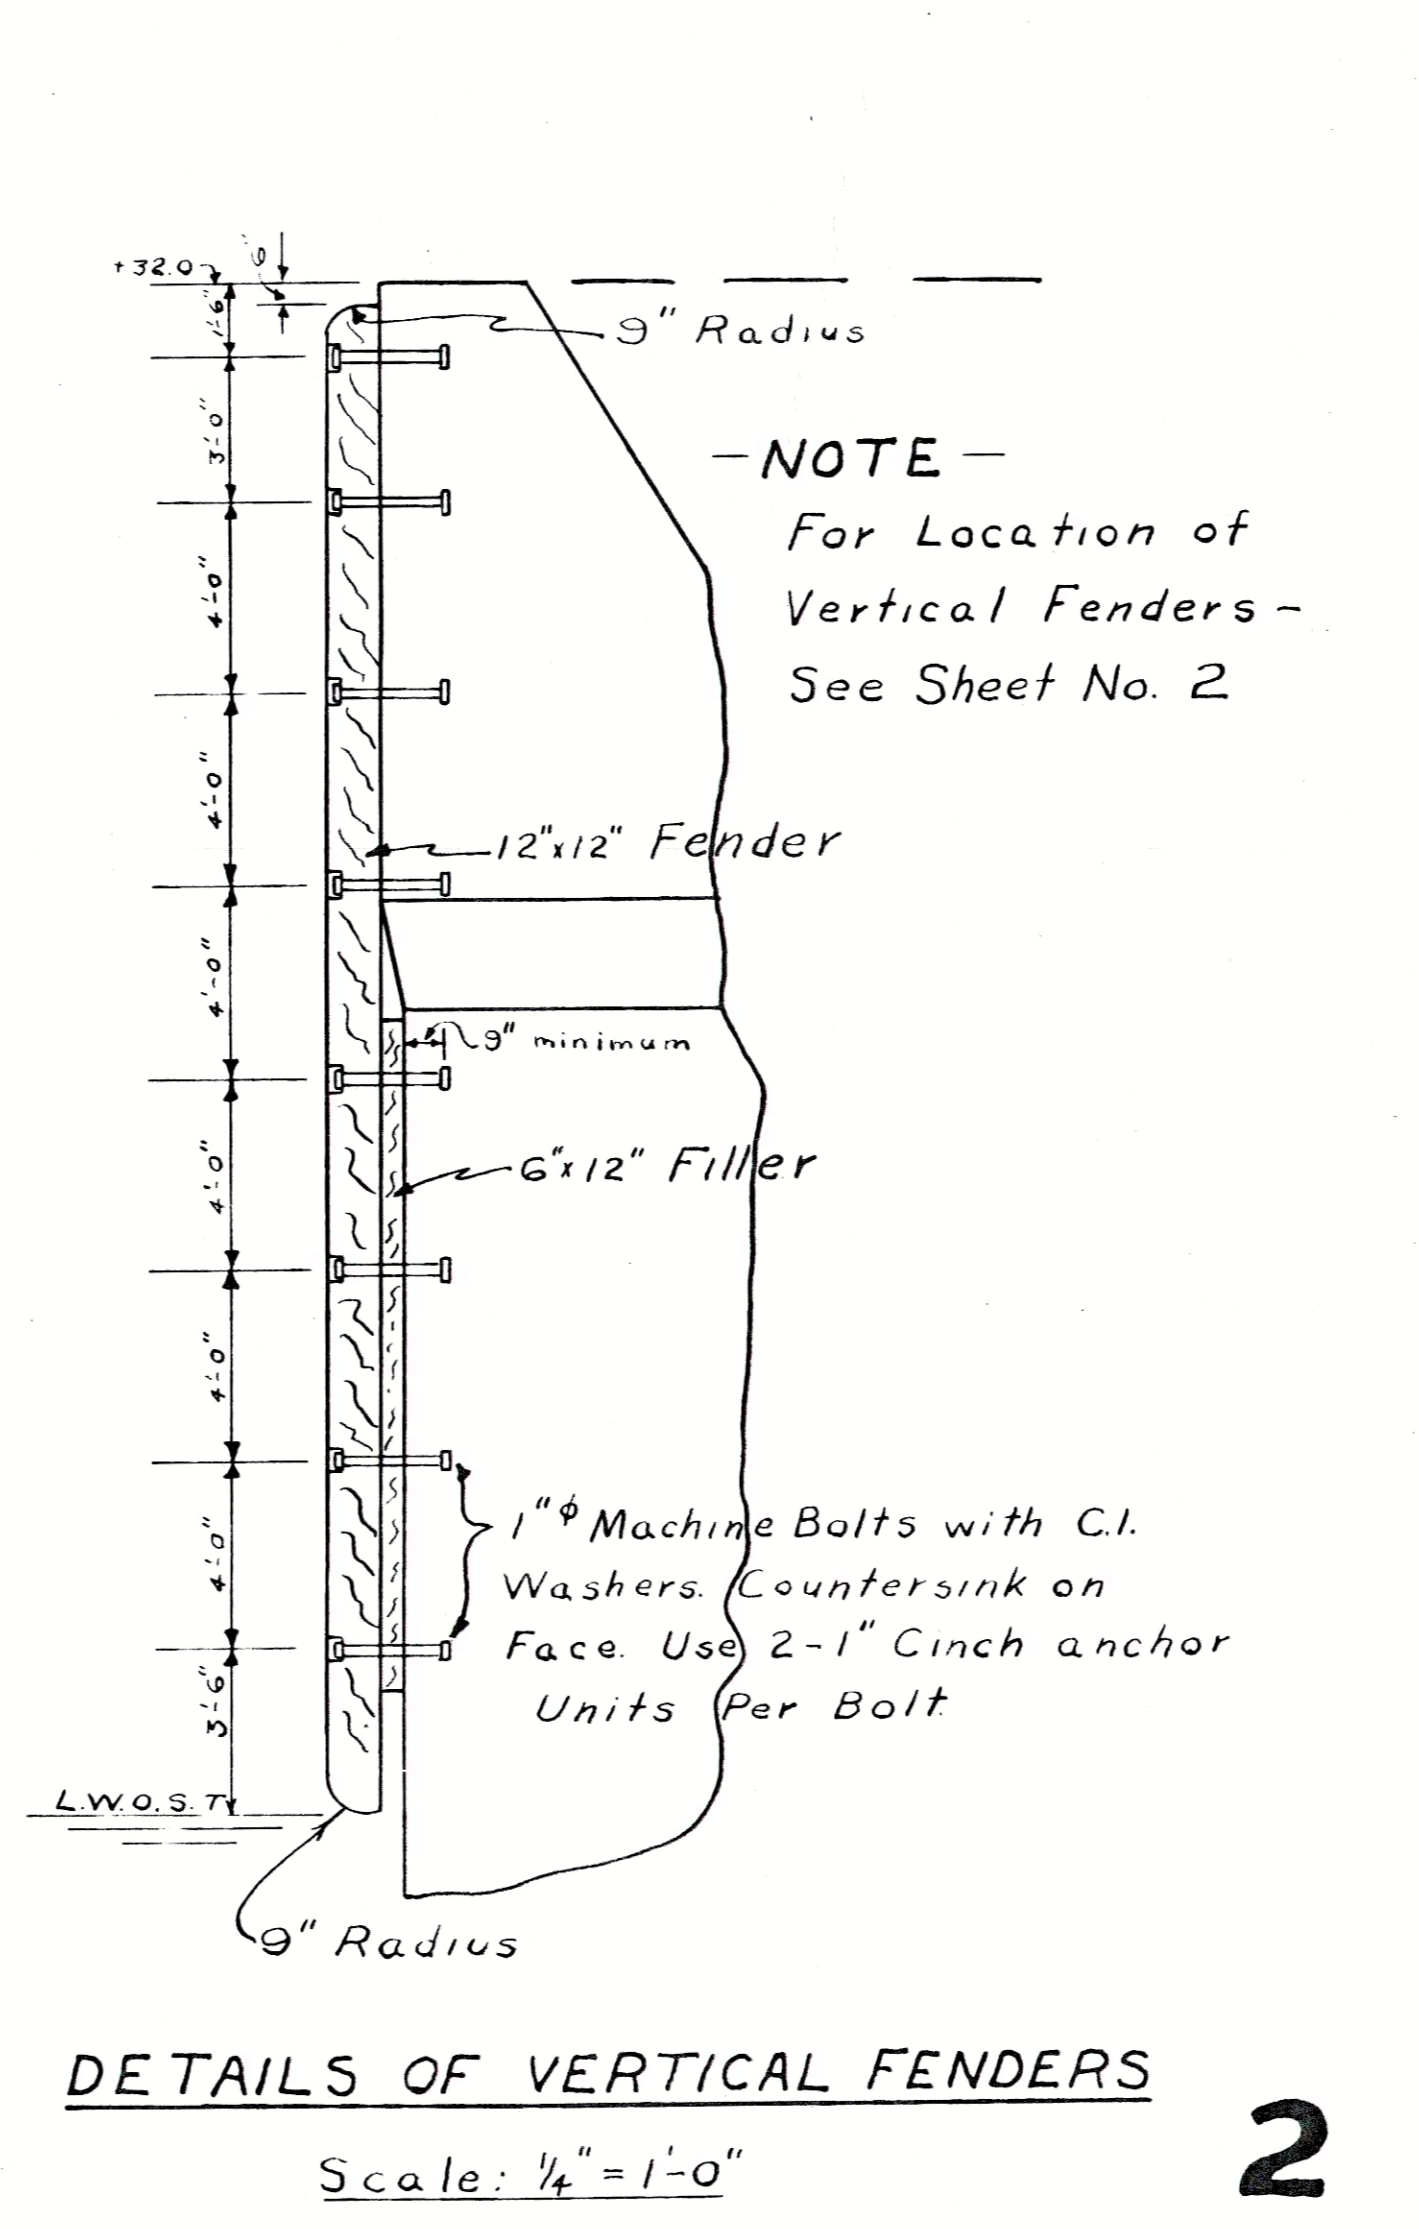 +32.0
6"
1'-6"
9" Radius
3'-0"
-NOTE-
For Location of
Vertical Fenders-
See Sheet No. 2
4'-0"
4'-0"
12"x12" Fender
4'-0"
9" minimum
4'-0"
6"x12" Filler
4'-0"
4'-0"
1"ϕ Machine Bolts with C.I.
Washers. Countersink on
Face. Use 2-1" Cinch anchor
Units Per Bolt.
3'-6"
L.W.O.S.T.
9" Radius
DETAILS OF VERTICAL FENDERS
Scale: 1/4" = 1'-0"
2